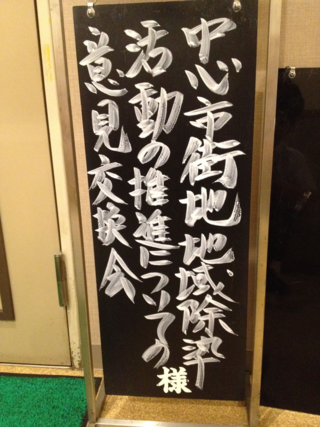 中心市街地地域除染
活動の推進についての
意見交換会
様